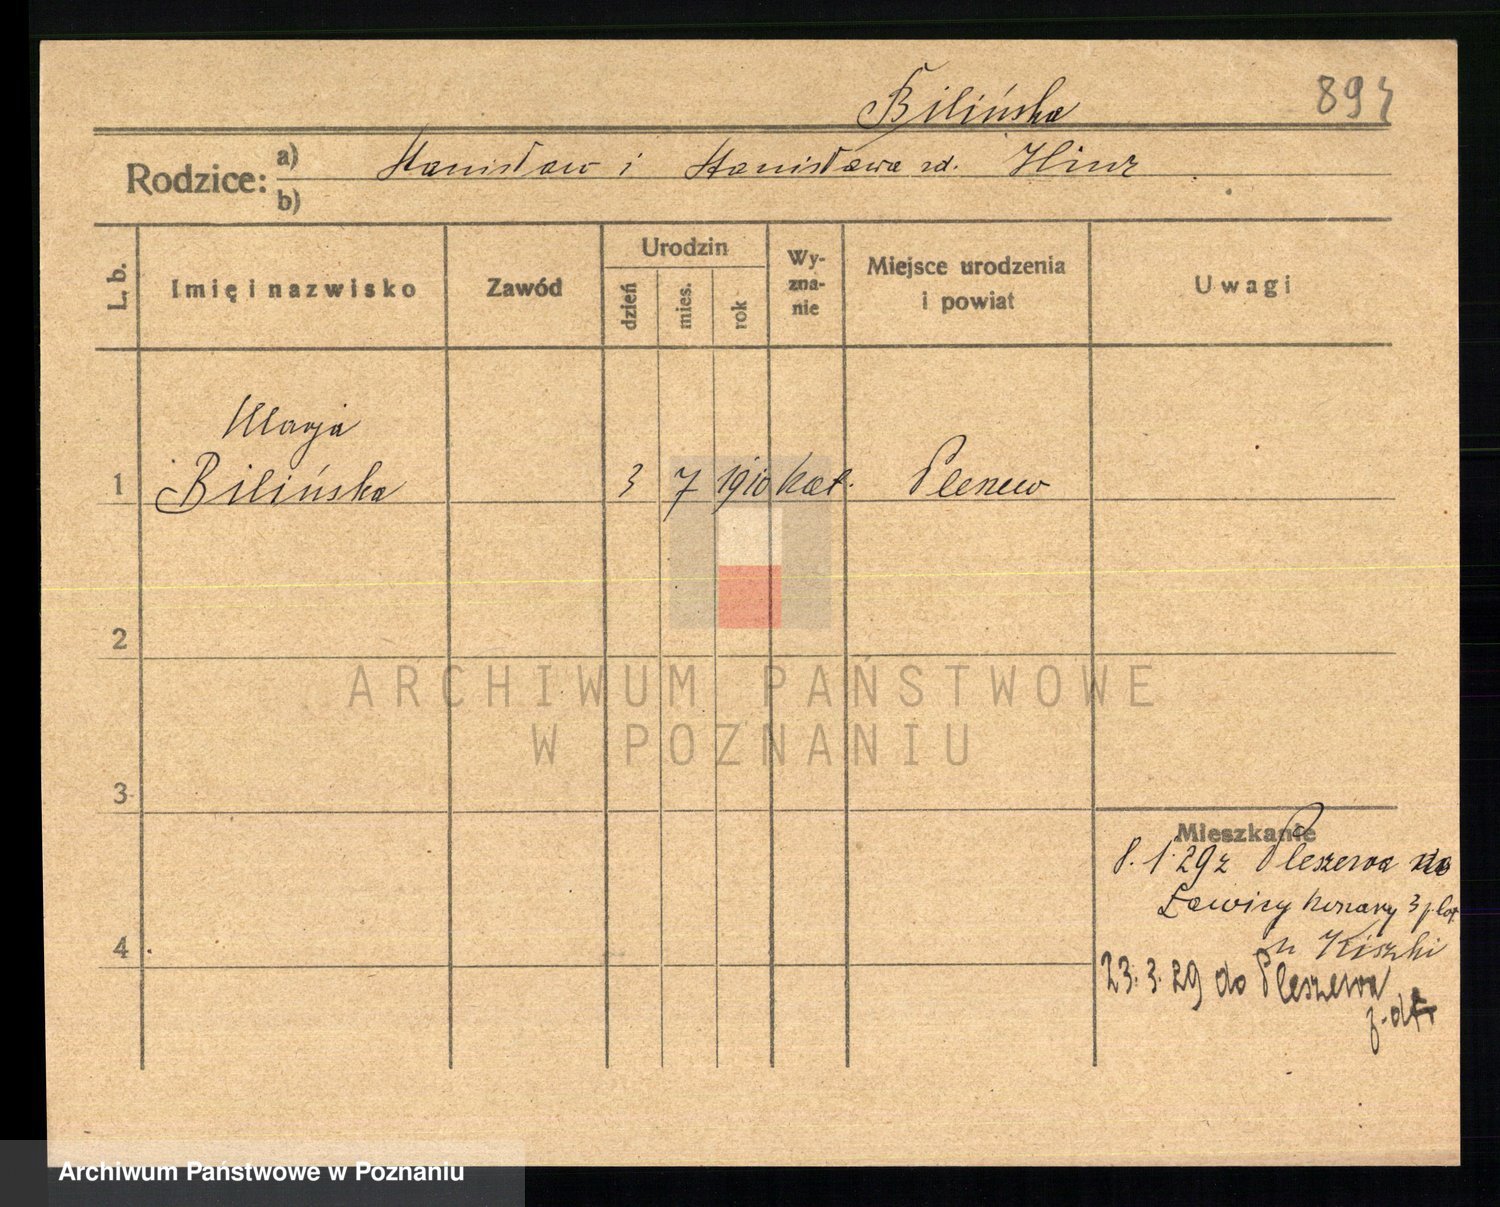 Bilińska
894
Rodzice: a) Stanisław i Stanisława zd. Hinz
b)
L. b. Imię i nazwisko Zawód Urodzin dzień mies. rok Wy-zna-nie Miejsce urodzenia i powiat Uwagi
Marja
1 Bilińska 3 7 1910 kat. Pleszew
2
ARCHIWUM PAŃSTWOWE
W POZNANIU
3
Mieszkanie
8.1.29 z Pleszewa do
Ławicy 3
4
u Kiszki
23.3.29 do Pleszewa
Archiwum Państwowe w Poznaniu